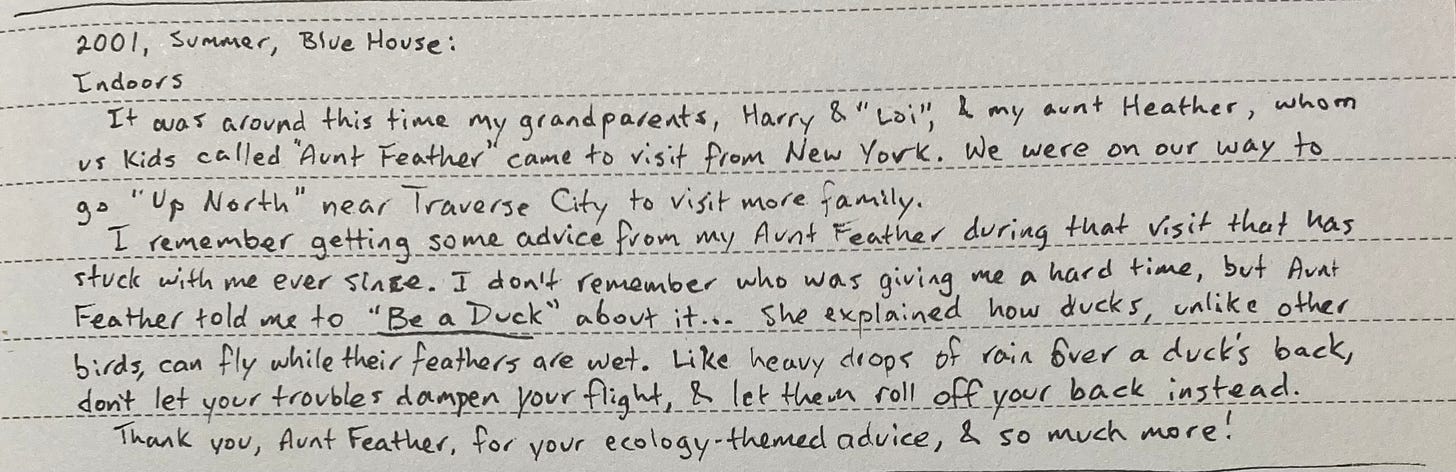 2001, Summer, Blue House:
Indoors
It was around this time my grandparents, Harry & "Loi", & my aunt Heather, whom
us kids called "Aunt Feather" came to visit from New York. We were on our way to
go "Up North" near Traverse City to visit more family.
I remember getting some advice from my Aunt Feather during that visit that has
stuck with me ever since. I don't remember who was giving me a hard time, but Aunt
Feather told me to "Be a Duck" about it... She explained how ducks, unlike other
birds, can fly while their feathers are wet. Like heavy drops of rain over a duck's back,
don't let your troubles dampen your flight, & let them roll off your back instead.
Thank you, Aunt Feather, for your ecology-themed advice, & so much more!